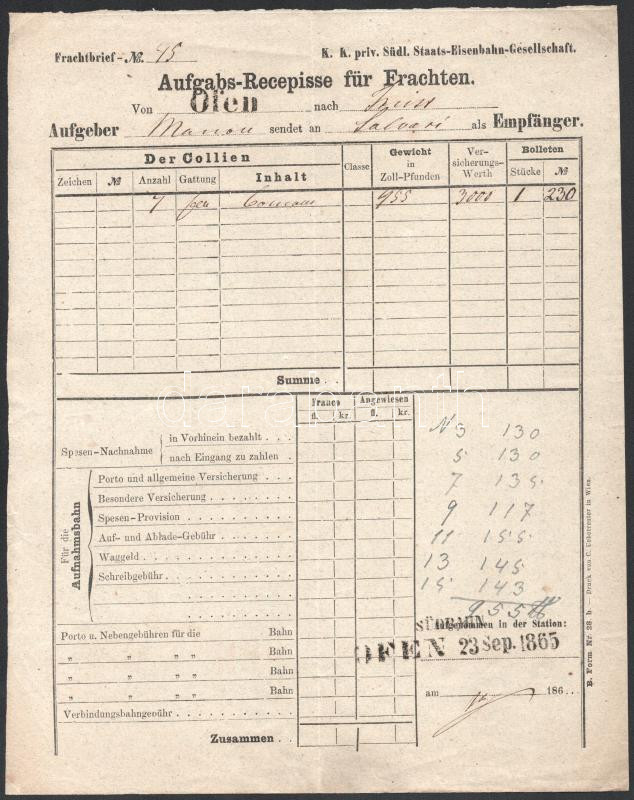 Frachtbrief-№. 45
K. K. priv. Südl. Staats-Eisenbahn-Gesellschaft.
Aufgabs-Recepisse für Frachten.
Von Ofen nach Triest
Aufgeber sendet an Salvari als Empfänger.
Der Collien
Classe
Gewicht in Zoll-Pfunden
Versicherungs-Werth
Bolleten
Zeichen № Anzahl Gattung Inhalt Stücke №
7 955 3000 1 230
Summe . .
Franco Angewiesen
fl. kr. fl. kr.
Spesen-Nachnahme
in Vorhinein bezahlt . . .
nach Eingang zu zahlen .
Für die Aufnahmsbahn
Porto und allgemeine Versicherung .
Besondere Versicherung . . . . .
Spesen-Provision . . . . . . .
Auf- und Ablade-Gebühr . . . .
Waggeld . . . . . . . . .
Schreibgebühr . . . . . . . .
Porto u. Nebengebühren für die Bahn
„ „ „ „ Bahn
„ „ „ „ Bahn
„ „ „ „ Bahn
Verbindungsbahngebühr . . . . . . . .
Zusammen . . .
№ 3 130
5 130
7 135
9 117
11 155
13 145
15 143
955 ℔
Aufgenommen in der Station:
SÜDBAHN
OFEN 23 Sep. 1865
am 186 . . .
B. Form Nr. 28. b. — Druck von C. Ueberreuter in Wien.
darabanth